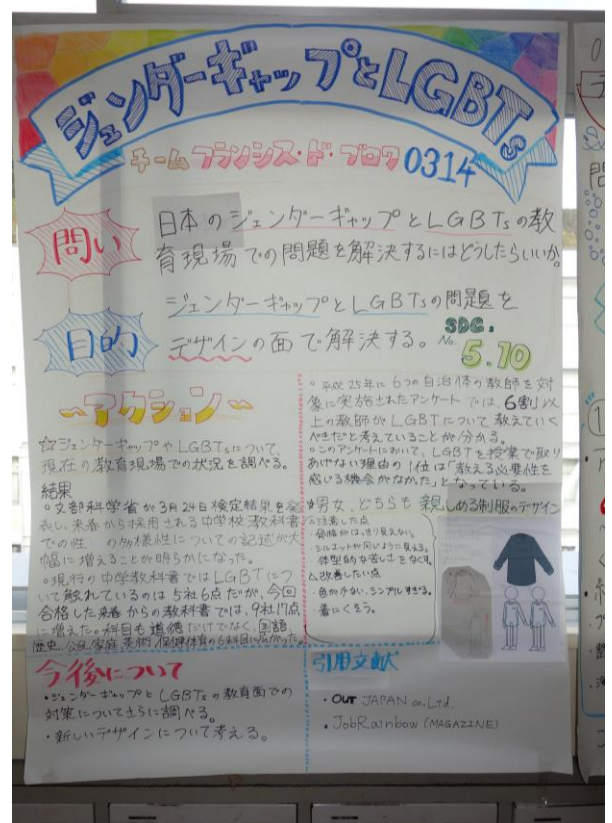 ジェンダーギャップとLGBTs
チームフランシス・ド・ブロワ0314
問い
日本のジェンダーギャップとLGBTsの教
育現場での問題を解決するにはどうしたらいいか。
目的
ジェンダーギャップとLGBTsの問題を
デザインの面で解決する。
SDG.
No. 5.10
～アクション～
☆ジェンダーギャップやLGBTsについて、
現在の教育現場での状況を調べる。
結果
○文部科学省が3月24日検定結果を発
表し、来春から採用される中学校教科書
での性 の多様性についての記述が大
幅に増えることが明らかになった。
○現行の中学教科書ではLGBTにつ
いて触れているのは5社6点だが、今回
合格した来春からの教科書では、9社17点
に増えた。科目も道徳だけでなく、国語、
歴史、公民、家庭、美術、保健体育の6科目に広がった。
○平成25年に6つの自治体の教師を対
象に実施されたアンケートでは、6割以
上の教師がLGBTについて教えていく
べきだと考えていることが分かる。
○このアンケートにおいて、LGBTを授業で取り
あげない理由の1位は「教える必要性を
感じる機会がなかった」となっている。
男女、どちらも親しめる制服のデザイン
△注意した点
・骨格がはっきり見えない。
・シルエットが同じように見える。
・体型的な苦しさをなくす。
△改善したい点
・色が少ない、シンプルすぎる。
・着にくそう。
今後について
・ジェンダーギャップとLGBTsの教育面での
対策についてさらに調べる。
・新しいデザインについて考える。
引用文献
・OUT JAPAN co.Ltd.
・JobRainbow (MAGAZINE)